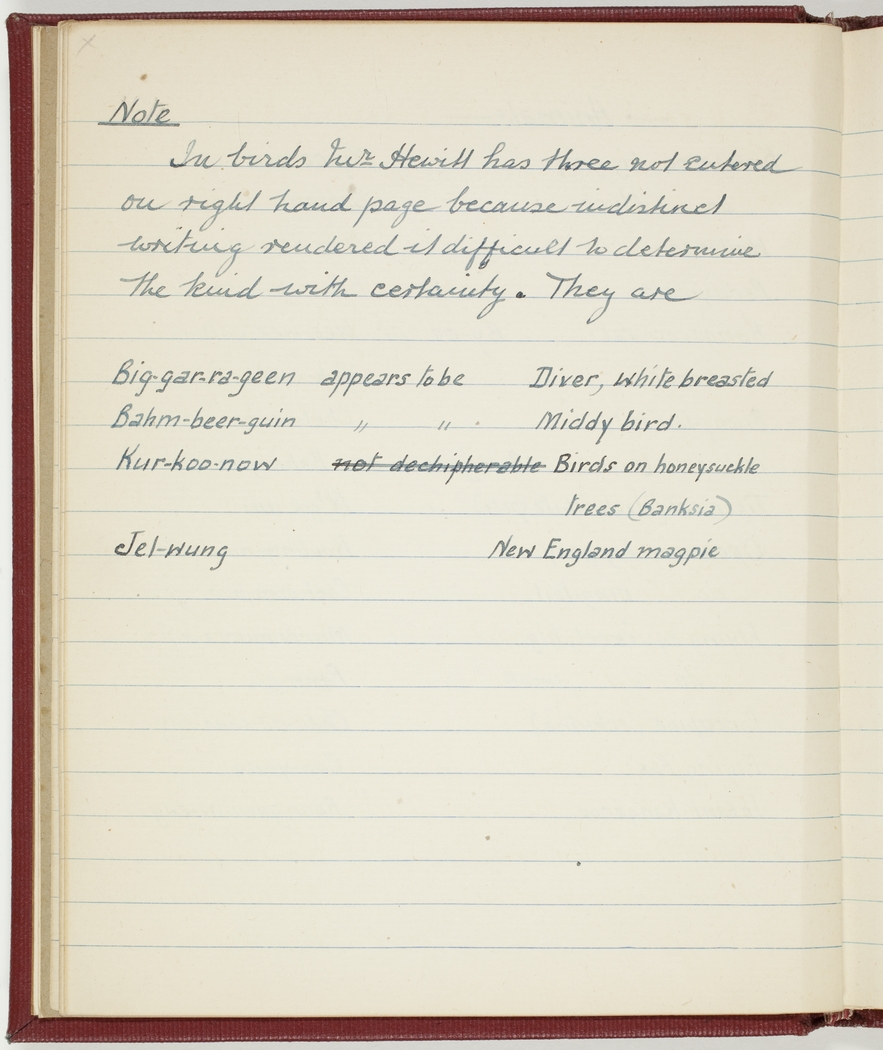 Note
In birds Mr Hewitt has three not entered
on right hand page because indistinct
writing rendered it difficult to determine
the kind with certainty. They are
Big-gar-ra-geen appears to be Diver, white breasted
Bahm-beer-guin " " Middy bird.
Kur-koo-now not dechipherable Birds on honeysuckle
trees (Banksia)
Jel-wung New England magpie